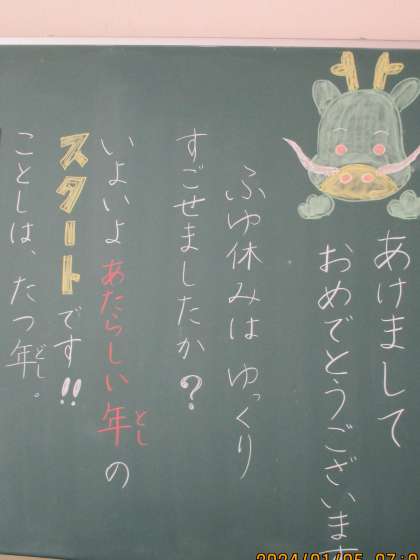 あけまして
おめでとうございます
ふゆ休みは ゆっくり
すごせましたか?
いよいよ あたらしい年の
とし
スタートです!!
ことしは、たつ年。
どし